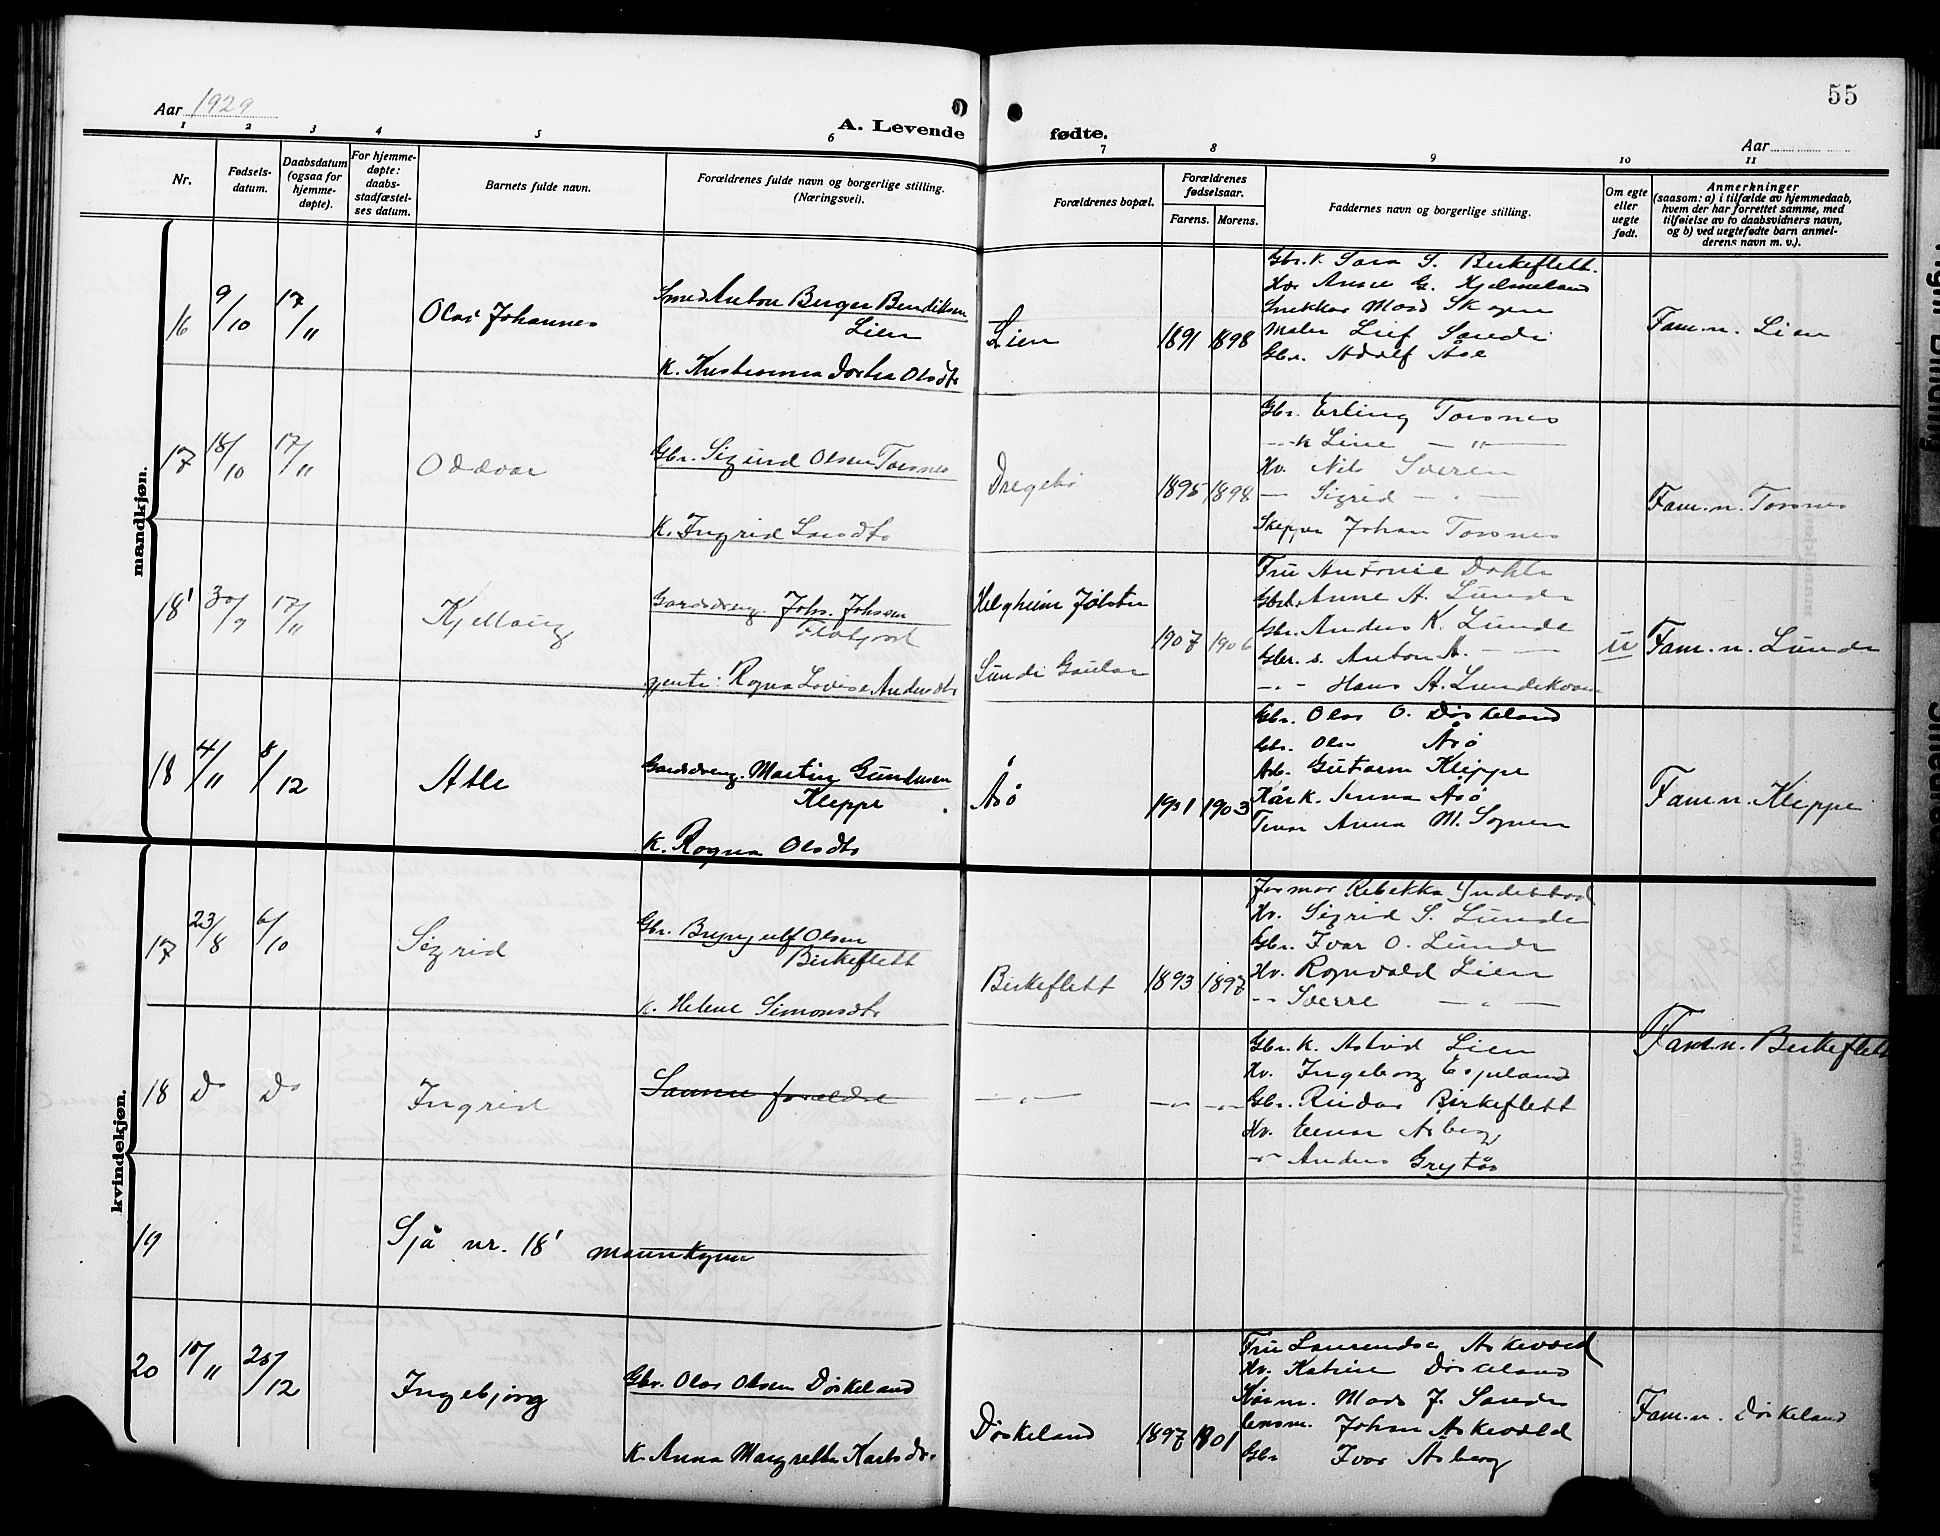 55
Aar 1929
A. Levende fødte.
Aar
1 2 3 4 5 6 7 8 9 10 11
Nr.
Fødsels-
datum.
Daabsdatum
(ogsaa for
hjemme-
døpte).
For hjemme-
døpte:
daabs-
stadfæstel-
ses datum.
Barnets fulde navn.
Forældrenes fulde navn og borgerlige stilling.
(Næringsvei).
Forældrenes bopæl.
Forældrenes
fødselsaar.
Farens. Morens.
Faddernes navn og borgerlige stilling.
Om egte
eller
uegte
født.
Anmerkninger
(saasom: a) i tilfælde av hjemmedaab,
hvem der har forrettet samme, med
tilføielse av to daabsvidners navn,
og b) ved uegtefødte barn anmel-
derens navn m. v.).
mandkjøn.
16 9/10 17/11 Olav Johannes
Smed Anton Berger Bendiksen
Lien
K. Kristianna Dortea Olsdtr
Lien 1891 1898
Gbr. k. Sara S. Birkeflett.
Hv. Anne G. Hjelmeland
Snekker Mons Skogen
Maler Leif Sande
Gbr. Adolf Åse
Fam.n. Lien
17 18/10 17/11 Oddvar
Gbr. Sigurd Olsen Torsnes
K. Ingrid Larsdtr
Dregebø 1895 1898
Gbr. Erling Torsnes
— k Line — " —
Hv. Nils Sveren
— Sigrid — " —
Skipper Johan Torsnes
Fam.n. Torsnes
18' 30/9 17/11 Kjellaug
Gardsdreng. Johs. Johssen
Flatjord
gjente: Ragna Lovise Andersdtr
Helgheim Jølster
Lunde Gaular
1907 1906
Fru Antonie Dahle
Gbr.d. Anne A. Lunde
Gbr. Anders K. Lunde
Gbr. s. Anton A. —
— " — Hans A. Lundekvam
u
Fam.n. Lunde
18 4/11 8/12 Atle
Gardsdreng. Martin Gundersen
Kleppe
K. Ragna Olsdtr
Åsø 1901 1903
Gbr. Olav O. Døskeland
Gbr. Ole Åsø
Arb. Gutorm Kleppe
Hårk. Jenna Åsø
Tenar Anna M. Sognen
Fam.n. Kleppe
kvindekjøn.
17 23/8 6/10 Sigrid
Gbr. Brynjulf Olsen
Birkeflett
K. Helene Simonsdtr
Birkeflett 1893 1897
Jormor Rebekka Yndestad
Hv. Sigrid S. Lunde
Gbr. Ivar O. Lunde
Hv. Rognvald Lien
— Sverre — " —
Fam.n. Birkeflett
18 Do Do Ingrid
Samme foreldre
— " — — " — — " —
Gbr. k. Astrid Lien
Hv. Ingeborg Espeland
Gbr. Reidar Birkeflett
Hv. Einar Asberg
— " — Anders Grytås
19 Sjå nr. 18' mannkynn
20 10/11 26/12 Ingebjørg
Gbr. Olav Olsen Døskeland
K. Anna Margrette Karlsdtr.
Døskeland 1897 1901
Fru Laurendse Askvold
Hv. Katrine Døskeland
Kårm. Mons J. Sande
Lensm. Johan Askvold
Gbr Ivar Asberg
Fam.n. Døskeland